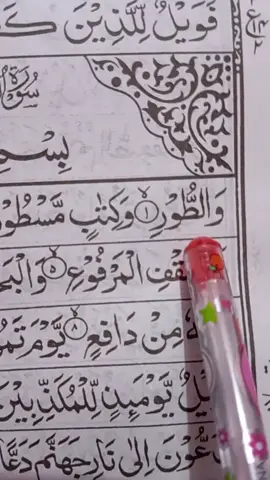 فَوَيْلٌ لِّلَّذِيْنَ كَ
سُوْرَةُ ال
بِسْمِ
وَالطُّوْرِ ۙ﴿۱﴾ وَكِتٰبٍ مَّسْطُوْرٍ
قْفِ الْمَرْفُوْعِ ۙ﴿۵﴾ وَالْبَحْ
مِنْ دَافِعٍ ۙ﴿۸﴾ يَّوْمَ تَمُوْ
يْلٌ يَّوْمَىِٕذٍ لِّلْمُكَذِّبِيْنَ
دَعُّوْنَ اِلٰى نَارِ جَهَنَّمَ دَعًّا